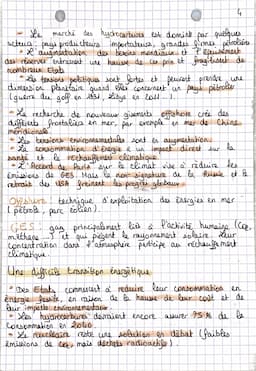 4
- Le marché des hydrocarbures est dominé par quelques
acteurs : pays producteurs, importateurs, grandes firmes pétrolières
- L'augmentation des besoins mondiaux et l'épuisement
des réserves entraînent une hausse de ces prix et fragilisent de
nombreux Etats
- Les tensions politiques sont fortes et peuvent prendre une
dimension planétaire quand elles concernent un pays pétrolier
(guerre du golf en 1991, Libye en 2011...)
- La recherche de nouveaux gisements offshore crée des
différends frontaliers en mer, par exemple en mer de Chine
méridionale.
- Les tensions environnementales sont en augmentation.
- La consommation d'énergie a un impact direct sur la
santé et le réchauffement climatique.
- L'Accord de Paris sur le climat vise à réduire les
émissions de GES. Mais la non signature de la Russie et le
retrait des USA freinent les progrès globaux.
Offshore : technique d'exploitation des énergies en mer
(pétrole, parc éolien).
GES : gaz principalement lié à l'activité humaine (CO2,
méthane ...) et qui piègent le rayonnement solaire. Leur
concentration dans l'atmosphère participe au réchauffement
climatique.
Une difficile transition énergétique
- Des Etats commencent à réduire leur consommation en
énergie fossile, en raison de la hausse de leur coût et de
leur impact environnementaux.
- Les hydrocarbures devraient encore assurer 75 % de la
consommation en 2040.
- Le nucléaire reste une solution en débat (faibles
émissions de CO2, mais déchets radioactifs)